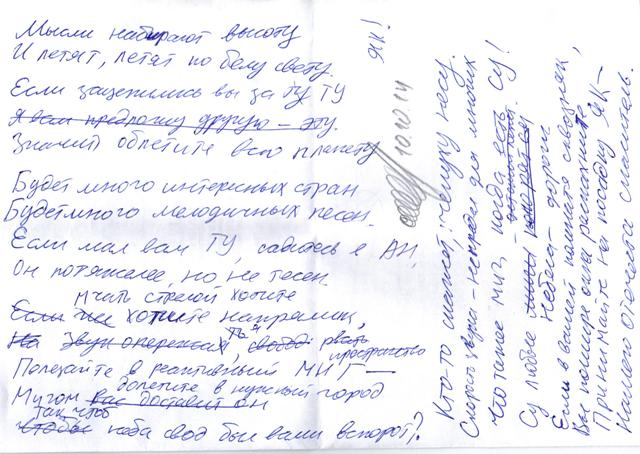 Мысли набирают высоту
И летят, летят по белу свету.
Если зацепились вы за ТУ ТУ
Я вам предложу другую – эту.
Значит облетите всю планету
Будет много интересных стран
Будет много мелодичных песен.
Если мал вам ТУ, садитесь в АН,
Он потяжелее, но не тесен.
мчать стрелой хотите
Если же хотите напрямик,
На звук опережать, рвать пространство
Полезайте в реактивный МИГ —
долетите в нужный город
Мигом вас доставит он
так, что
чтобы неба свод был вами вспорот?
10.10.14
Кто-то скажет: "Чепуху несу.
Скорость звука – непредел для многих
Что такое миг, когда есть СУ!
Су любое
Небеса – дороги
Если в вашей комнате сквозняк,
Вы пошире окна распахните,
Принимайте на посадку ЯК –
Нашего Отечества спаситель.
ЯК!